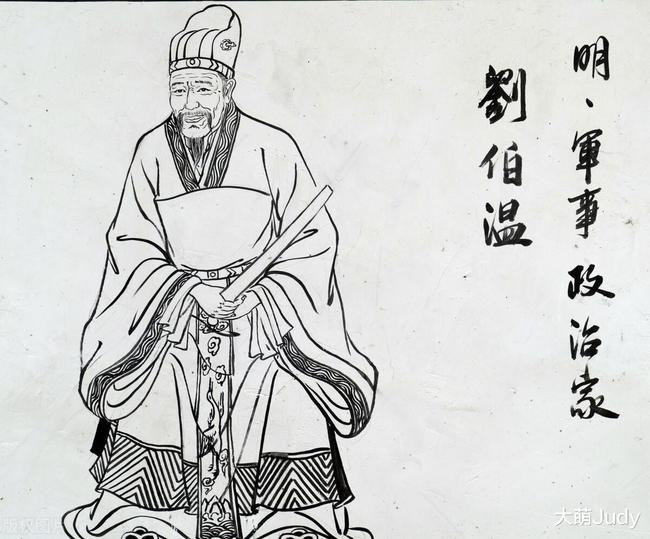 明、軍事政治家
劉伯温
版权图片
大萌Judy